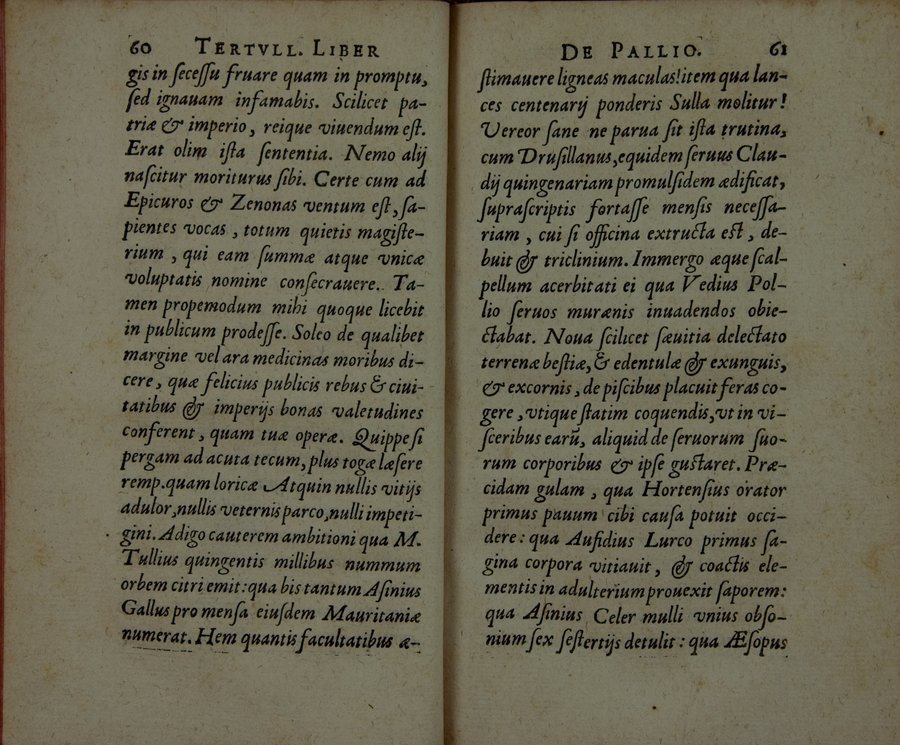 60 TERTVLL. LIBER
gis in ſeceſſu fruare quam in promptu,
ſed ignauam infamabis. Scilicet pa-
triæ & imperio, reique viuendum eſt.
Erat olim iſta ſententia. Nemo alij
naſcitur moriturus ſibi. Certe cum ad
Epicuros & Zenonas ventum eſt, ſa-
pientes vocas, totum quietis magiſte-
rium, qui eam ſummæ atque vnicæ
voluptatis nomine conſecrauere. Ta-
men propemodum mihi quoque licebit
in publicum prodeſſe. Soleo de qualibet
margine vel ara medicinas moribus di-
cere, quæ felicius publicis rebus & ciui-
tatibus & imperijs bonas valetudines
conferent, quam tuæ operæ. Quippe ſi
pergam ad acuta tecum, plus togæ læſere
remp. quam loricæ Atquin nullis vitijs
adulor, nullis veternis parco, nulli impeti-
gini. Adigo cauterem ambitioni qua M.
Tullius quingentis millibus nummum
orbem citri emit: qua bis tantum Aſinius
Gallus pro menſa eiuſdem Mauritaniæ
numerat. Hem quantis facultatibus æ-
DE PALLIO. 61
ſtimauere ligneas maculas! item qua lan-
ces centenarij ponderis Sulla molitur!
Vereor ſane ne parua ſit iſta trutina,
cum Druſillanus, equidem ſeruus Clau-
dij quingenariam promulſidem ædificat,
ſupraſcriptis fortaſſe menſis neceſſa-
riam, cui ſi officina extructa eſt, de-
buit & triclinium. Immergo æque ſcal-
pellum acerbitati ei qua Vedius Pol-
lio ſeruos murænis inuadendos obie-
ctabat. Noua ſcilicet ſæuitia delectato
terrenæ beſtiæ, & edentulæ & exunguis,
& excornis, de piſcibus placuit feras co-
gere, vtique ſtatim coquendis, vt in vi-
ſceribus earū, aliquid de ſeruorum ſuo-
rum corporibus & ipſe guſtaret. Præ-
cidam gulam, qua Hortenſius orator
primus pauum cibi cauſa potuit occi-
dere: qua Aufidius Lurco primus ſa-
gina corpora vitiauit, & coactis ele-
mentis in adulterium prouexit ſaporem:
qua Aſinius Celer mulli vnius obſo-
nium ſex ſeſtertijs detulit: qua Æſopus